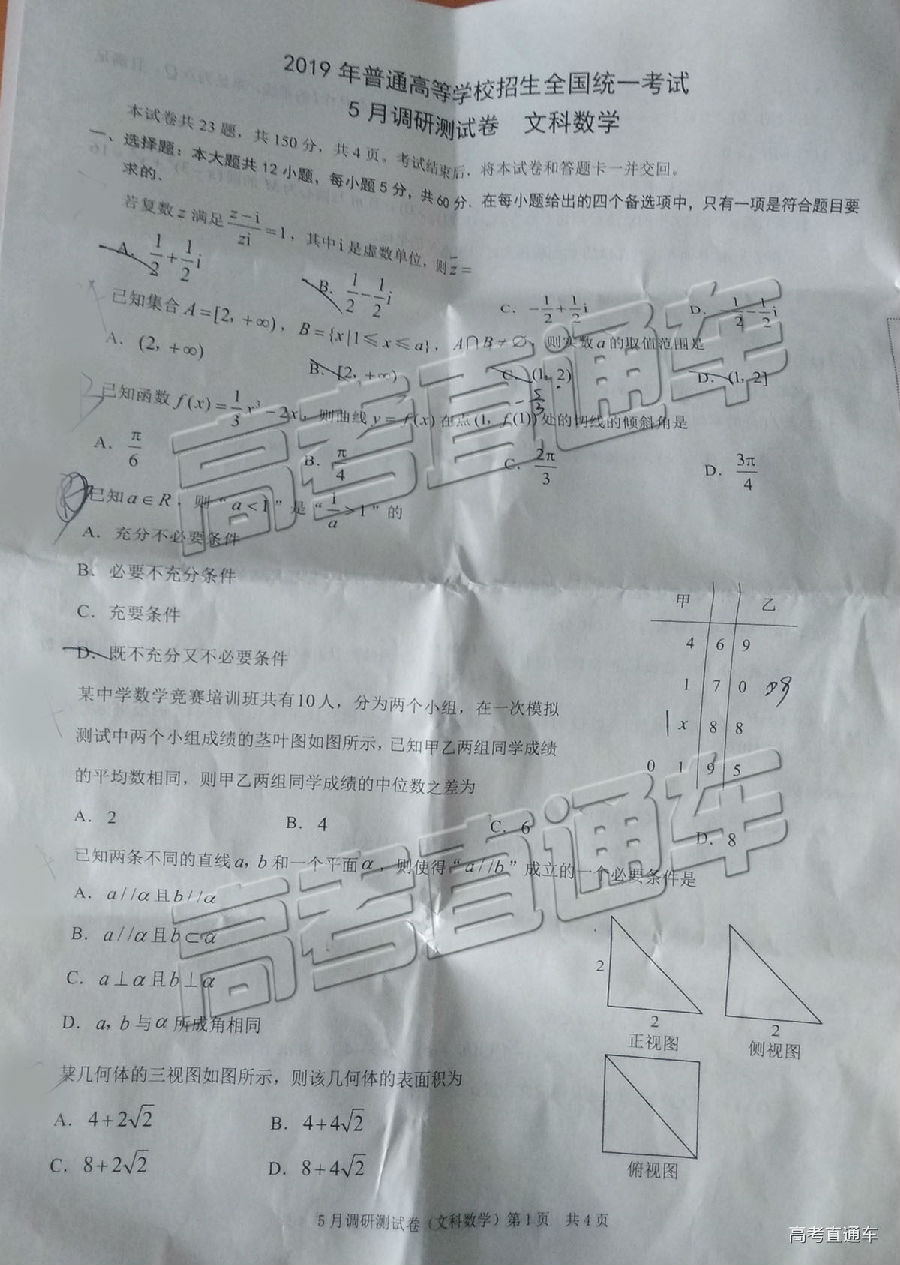 2019 年普通高等学校招生全国统一考试
5 月调研测试卷 文科数学
本试卷共 23 题，共 150 分，共 4 页。考试结束后，将本试卷和答题卡一并交回。
一、选择题：本大题共 12 小题，每小题 5 分，共 60 分．在每小题给出的四个备选项中，只有一项是符合题目要
求的．
若复数 z 满足 (z－i)/(zi) = 1，其中 i 是虚数单位，则 z̄ =
A． 1/2 + 1/2 i B． 1/2 − 1/2 i C． −1/2 + 1/2 i D． −1/2 − 1/2 i
已知集合 A=[2，+∞)，B={x|1≤x≤a}，A∩B≠∅，则实数 a 的取值范围是
A．(2，+∞) B．[2，+∞) C．(1，2) D．(1，2]
已知函数 f(x)= 1/3 x³ − 2x，则曲线 y=f(x) 在点 (1，f(1)) 处的切线的倾斜角是
A． π/6 B． π/4 C． 2π/3 D． 3π/4
− 5/3
已知 a∈R，则“a<1”是“1/a>1”的
A．充分不必要条件
B．必要不充分条件
C．充要条件
D．既不充分又不必要条件
某中学数学竞赛培训班共有10人，分为两个小组，在一次模拟
测试中两个小组成绩的茎叶图如图所示，已知甲乙两组同学成绩
的平均数相同，则甲乙两组同学成绩的中位数之差为
甲 乙
4 6 9
1 7 0
x 8 8
0 1 9 5
A．2 B．4 C．6 D．8
已知两条不同的直线 a，b 和一个平面 α，则使得“a//b”成立的一个必要条件是
A．a//α 且 b//α
B．a//α 且 b⊂α
C．a⊥α 且 b⊥α
D．a，b 与 α 所成角相同
某几何体的三视图如图所示，则该几何体的表面积为
A．4+2√2 B．4+4√2
C．8+2√2 D．8+4√2
2
2
正视图
2
侧视图
俯视图
5 月调研测试卷（文科数学）第 1 页 共 4 页
高考直通车
高考直通车
高考直通车